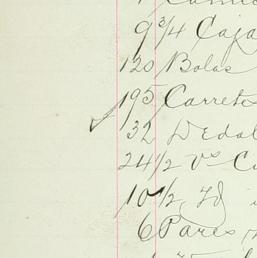 9 3/4 Caja
120 Bolas
195 Carretes
32 Dedal
24 1/2 Vs C
10 1/2 Id
6 Pares